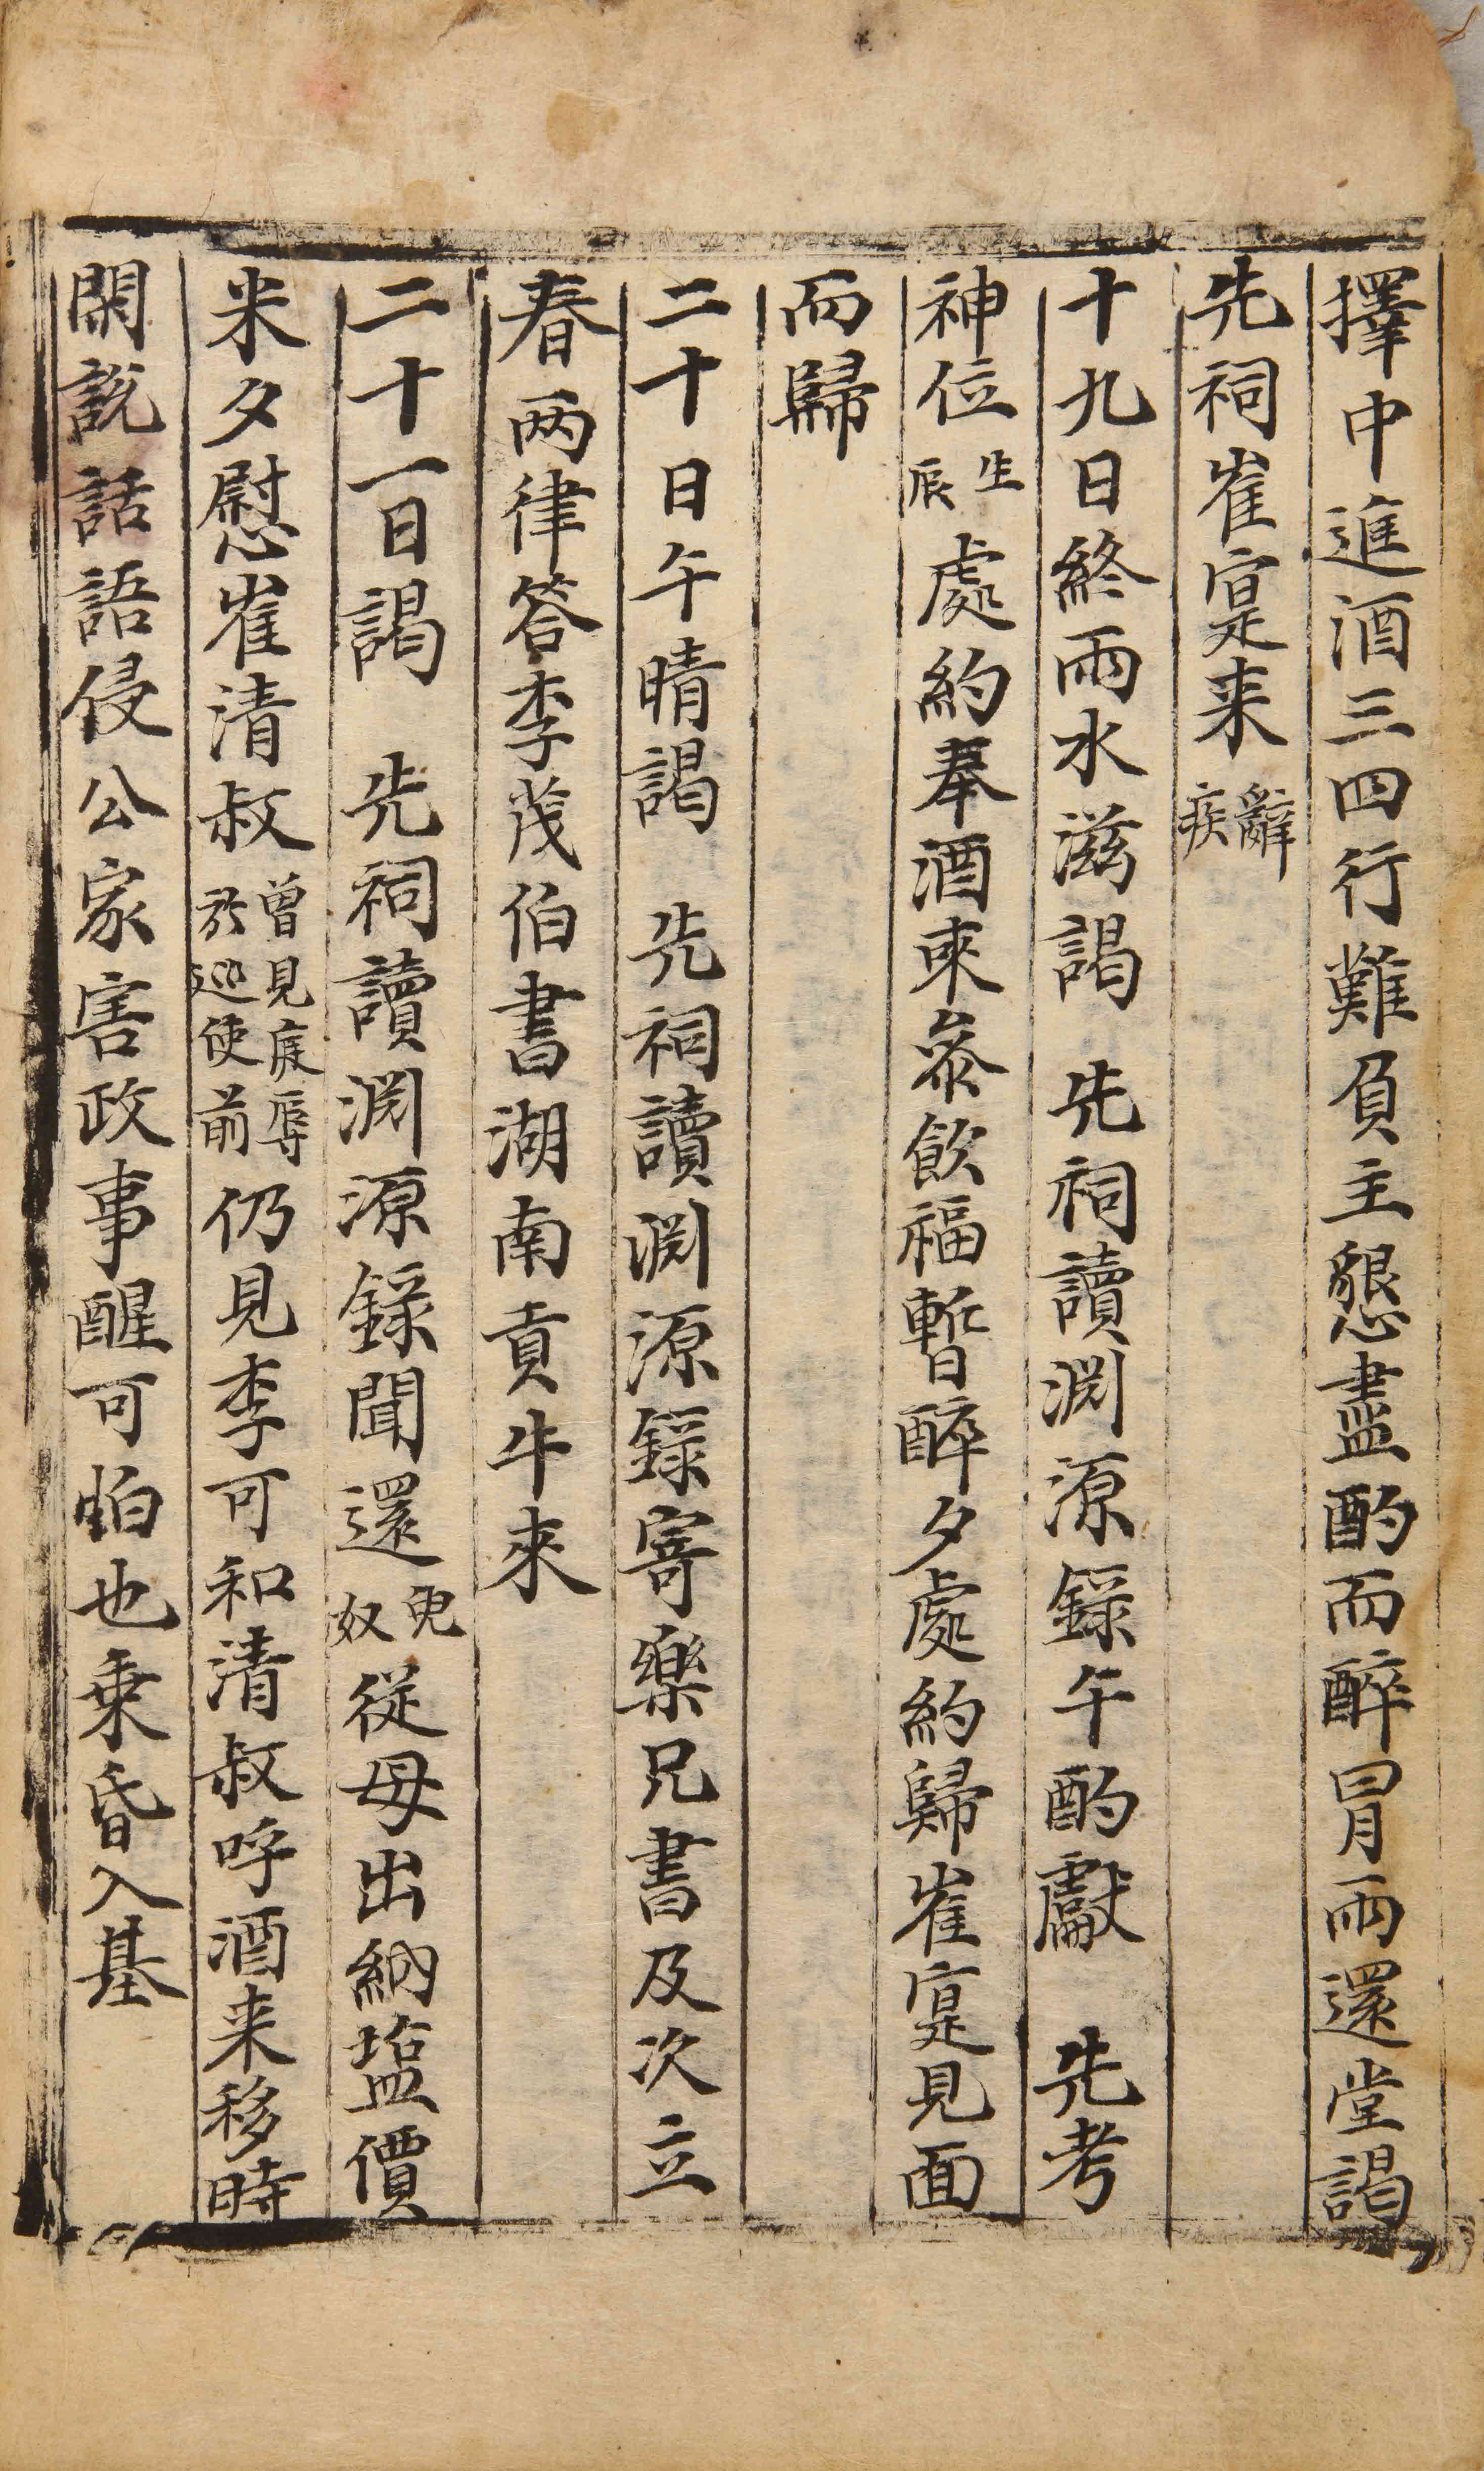 擇中進酒三四行難負主懇盡酌而醉冒雨還堂謁
先祠崔寔来辭疾
十九日終雨水滋謁 先祠讀渊源錄午酌獻 先考
神位生辰處約奉酒來叅飮福暫醉夕處約歸崔寔見面
而歸
二十日午晴謁 先祠讀渊源錄寄樂兄書及次立
春两律答李茂伯書湖南貢牛来
二十一日謁 先祠讀渊源錄聞還奴從母出納塩價
米夕慰崔清叔曾見辱於廵使前仍見李可和清叔呼酒来移時
閑說話語侵公家害政事醒可怕也乗昏入基